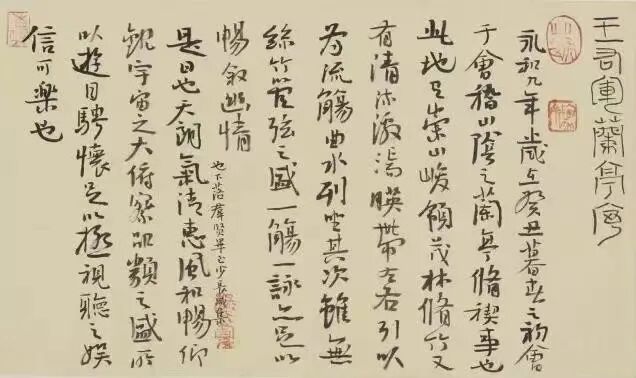 王右軍蘭亭序
永和九年歲在癸丑暮春之初會
于會稽山陰之蘭亭脩禊事也
此地有崇山峻領茂林脩竹又
有清流激湍暎帶左右引以
為流觴曲水列坐其次雖無
絲竹管弦之盛一觴一詠亦足以
暢敘幽情
也下落群賢畢至少長咸集
是日也天朗氣清惠風和暢仰
觀宇宙之大俯察品類之盛所
以遊目騁懷足以極視聽之娛
信可樂也